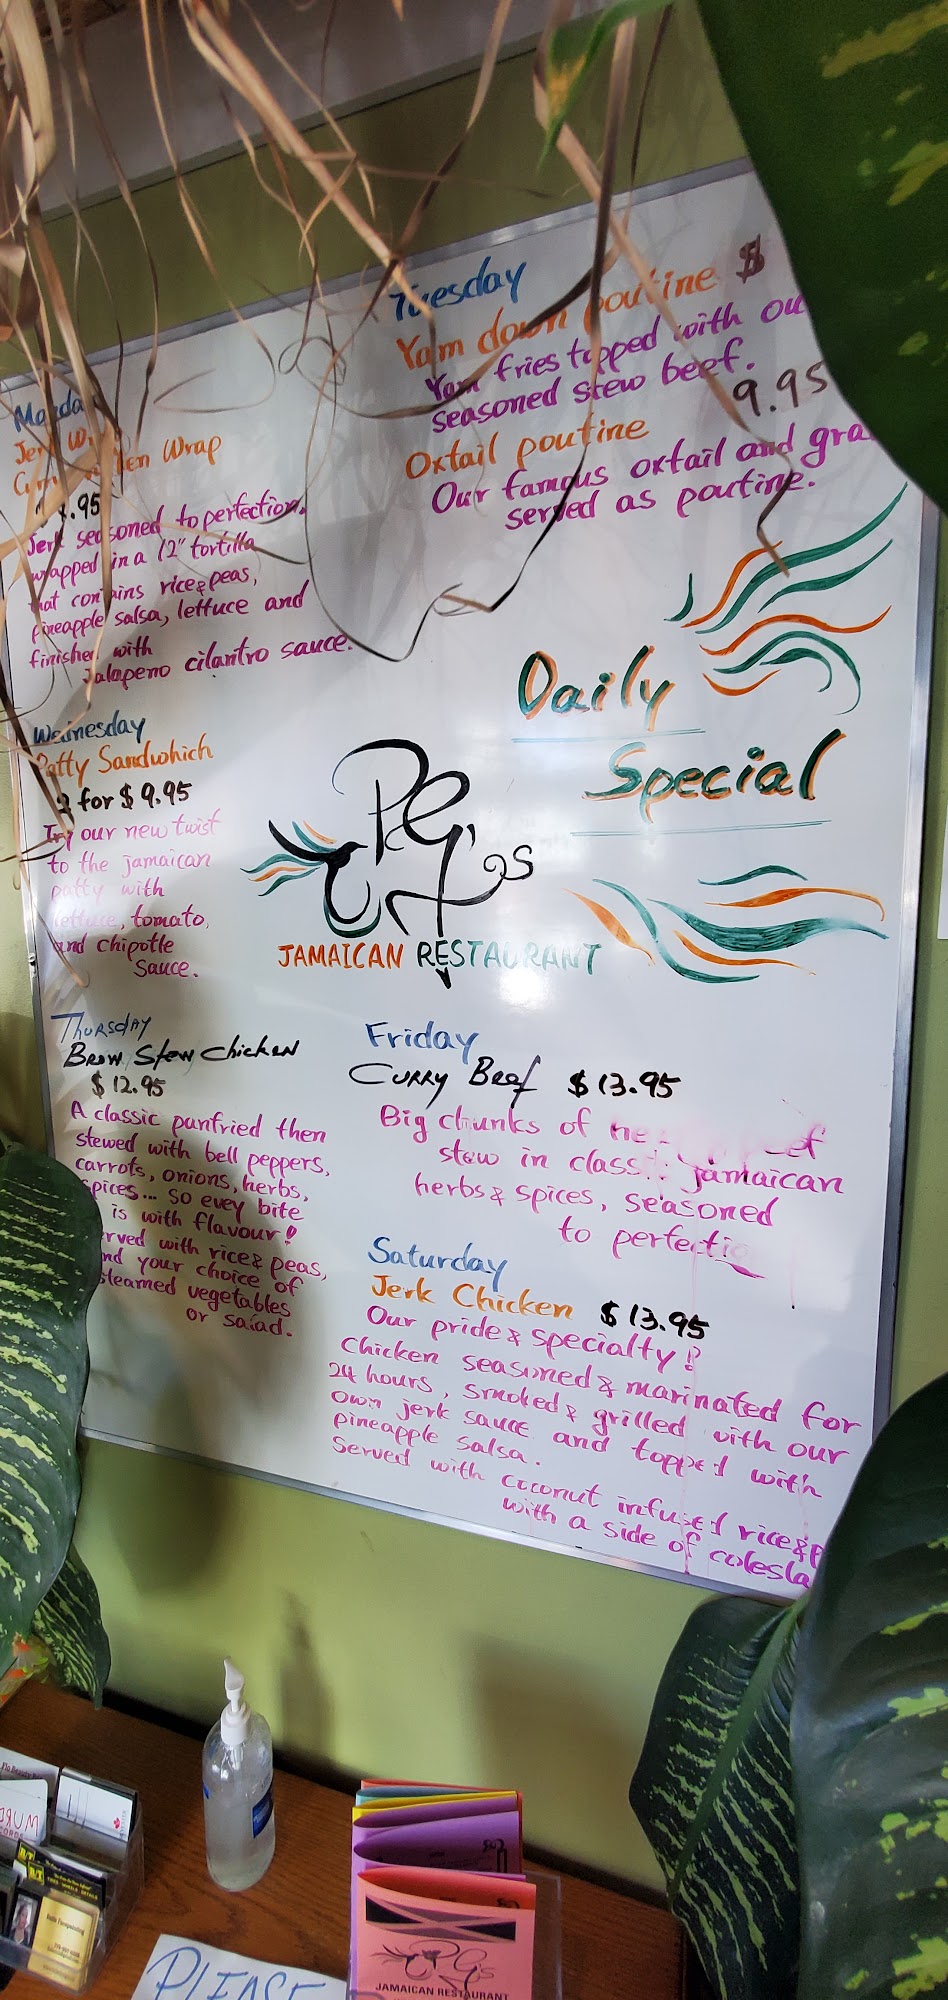 Tuesday
Yam down poutine $
Yam fries topped with ou
seasoned stew beef.
9.95
Oxtail poutine
Our famous oxtail and gra
served as poutine.
Monday
Wrap
.95
Jerk seasoned to perfection,
wrapped in a 12" tortilla
that contains rice & peas,
pineapple salsa, lettuce and
finished with
Jalapeno cilantro sauce.
Daily
Special
Wednesday
Patty Sandwhich
2 for $9.95
Try our new twist
to the jamaican
patty with
lettuce, tomato,
and chipotle
sauce.
PG's
JAMAICAN RESTAURANT
Thursday
Brow Stew Chicken
$12.95
A classic panfried then
stewed with bell peppers,
carrots, onions, herbs,
spices... so evey bite
is with flavour!
erved with rice & peas,
nd your choice of
steamed vegetables
or salad.
Friday
Curry Beef $13.95
Big chunks of
stew in jamaican
herbs & spices, seasoned
to perfectio
Saturday
Jerk Chicken $13.95
Our pride & specialty!
Chicken seasoned & marinated for
24 hours, smoked & grilled with our
own jerk sauce and topped with
pineapple salsa.
Served with coconut infused rice & p
with a side of colesla
PLEASE
PG's
JAMAICAN RESTAURANT